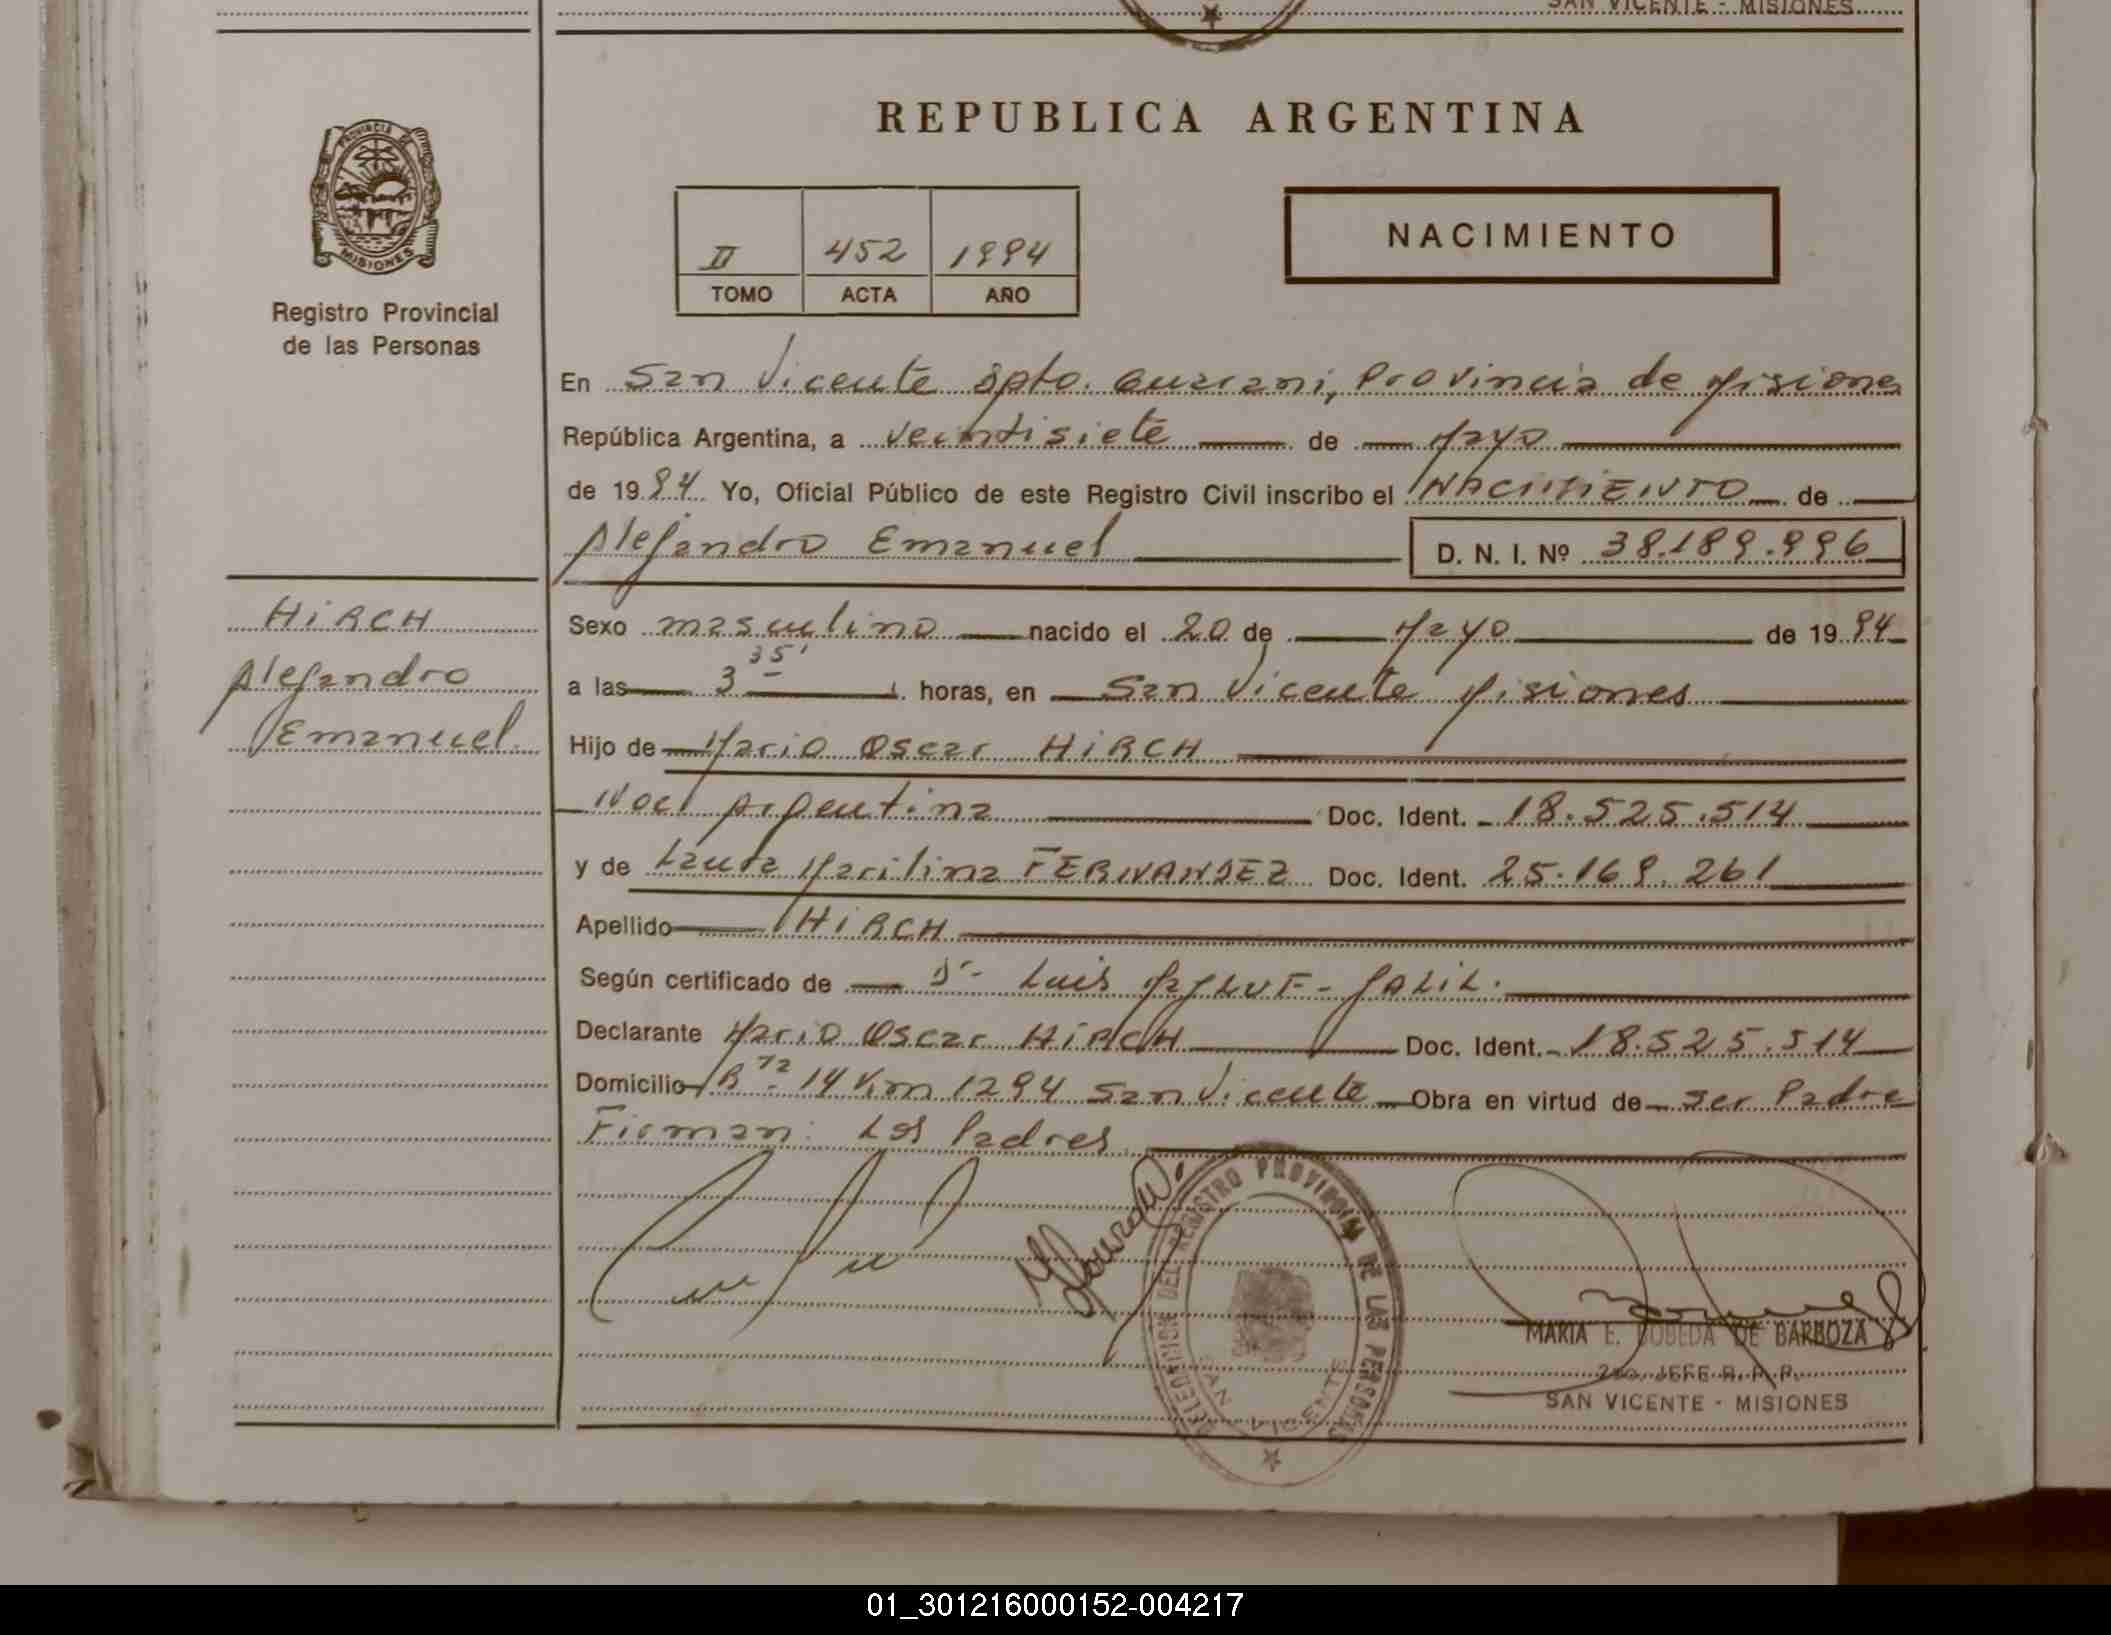 SAN VICENTE - MISIONES
REPUBLICA ARGENTINA
PROVINCIA DE
MISIONES
Registro Provincial
de las Personas
II 452 1994
TOMO ACTA AÑO
NACIMIENTO
En San Vicente Dpto. Guarani, Provincia de Misiones
República Argentina, a veintisiete de Mayo
de 1994 Yo, Oficial Público de este Registro Civil inscribo el NACIMIENTO de
Alejandro Emanuel D. N. I. Nº 38.189.996
HiRCH
Alejandro
Emanuel
Sexo masculino nacido el 20 de Mayo de 1994
a las 3 35' horas, en San Vicente Misiones
Hijo de Mario Oscar HiRCH
Nac. Argentina Doc. Ident. 18.525.514
y de Laura Marilina FERNANDEZ Doc. Ident. 25.169.261
Apellido HiRCH
Según certificado de Dr. Luis
Declarante Mario Oscar HiRCH Doc. Ident. 18.525.514
Domicilio R ta 14 Km 1294 San Vicente Obra en virtud de ser Padre
Firman: Los Padres
DELEGACION DEL REGISTRO PROVINCIAL DE LAS PERSONAS
SAN VICENTE
MARIA E. DE BARBOZA
2do. JEFE R. P. P.
SAN VICENTE - MISIONES
01_301216000152-004217